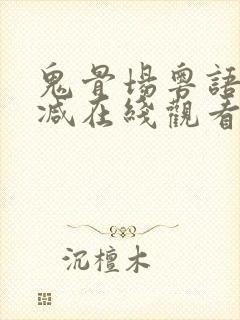 鬼骨場粵語
減在綫觀看
沉檀木